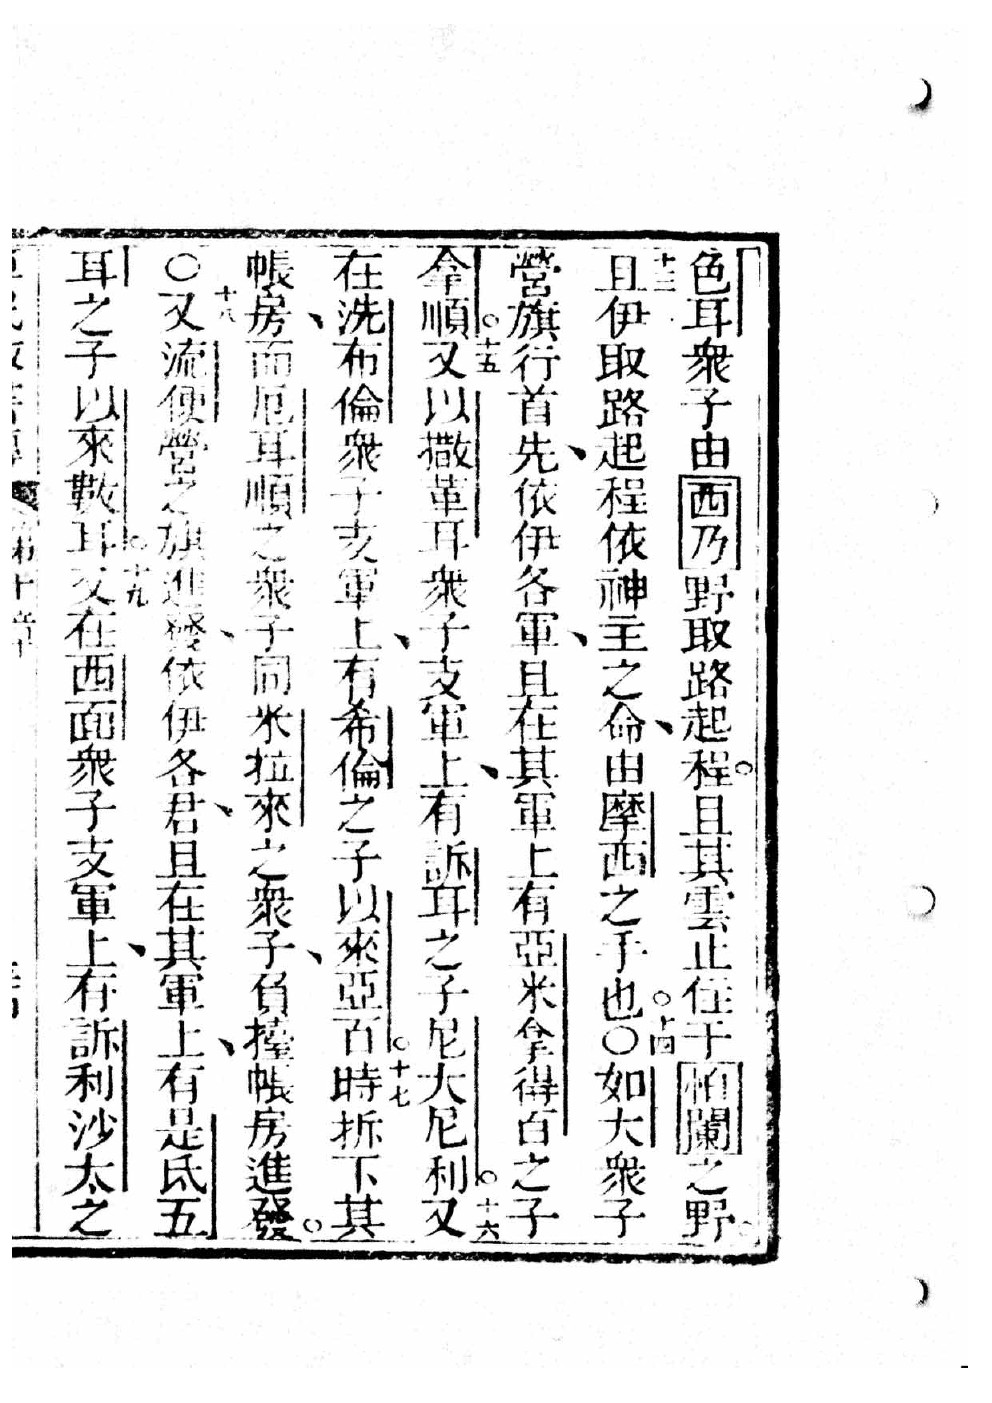 色耳衆子由西乃野取路起程且其雲止住于柏蘭之野
十三且伊取路起程依神主之命由摩西之手也〇十四如大衆子
營旗行首先依伊各軍且在其軍上有亞米拿得百之子
拿順十五又以撒革耳衆子支軍上有訴耳之子尼大尼利十六又
在洗布倫衆子支軍上有希倫之子以來亞百十七時拆下其
帳房而厄耳順之衆子同米拉來之衆子負擡帳房進發
〇十八又流便營之旗進發依伊各君且在其軍上有是氐五
耳之子以來數耳十九又在西面衆子支軍上有訴利沙太之
第十章